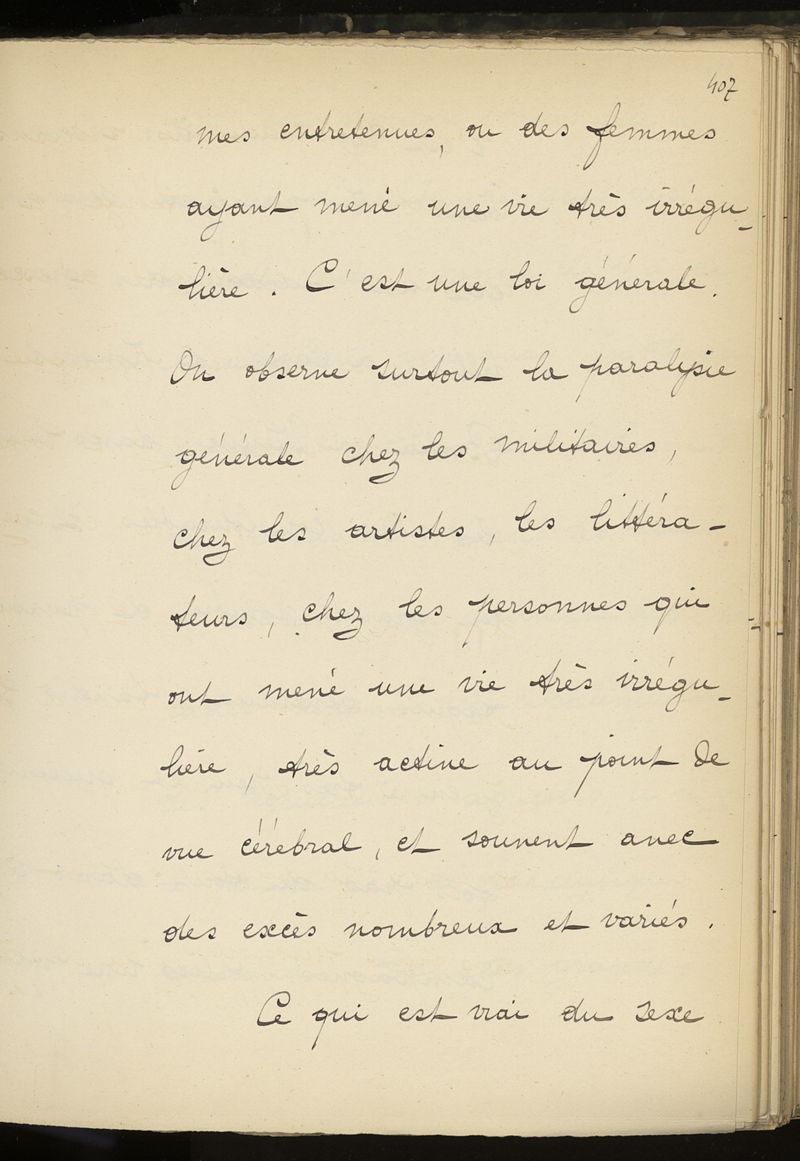 407
mes entretenues, ou des femmes
ayant mené une vie très irrégu-
lière. C'est une loi générale.
On observe surtout la paralysie
générale chez les militaires,
chez les artistes, les littéra-
teurs, chez les personnes qui
ont mené une vie très irrégu-
lière, très active au point de
vue cérébral, et souvent avec
des excès nombreux et variés.
Ce qui est vrai du sexe